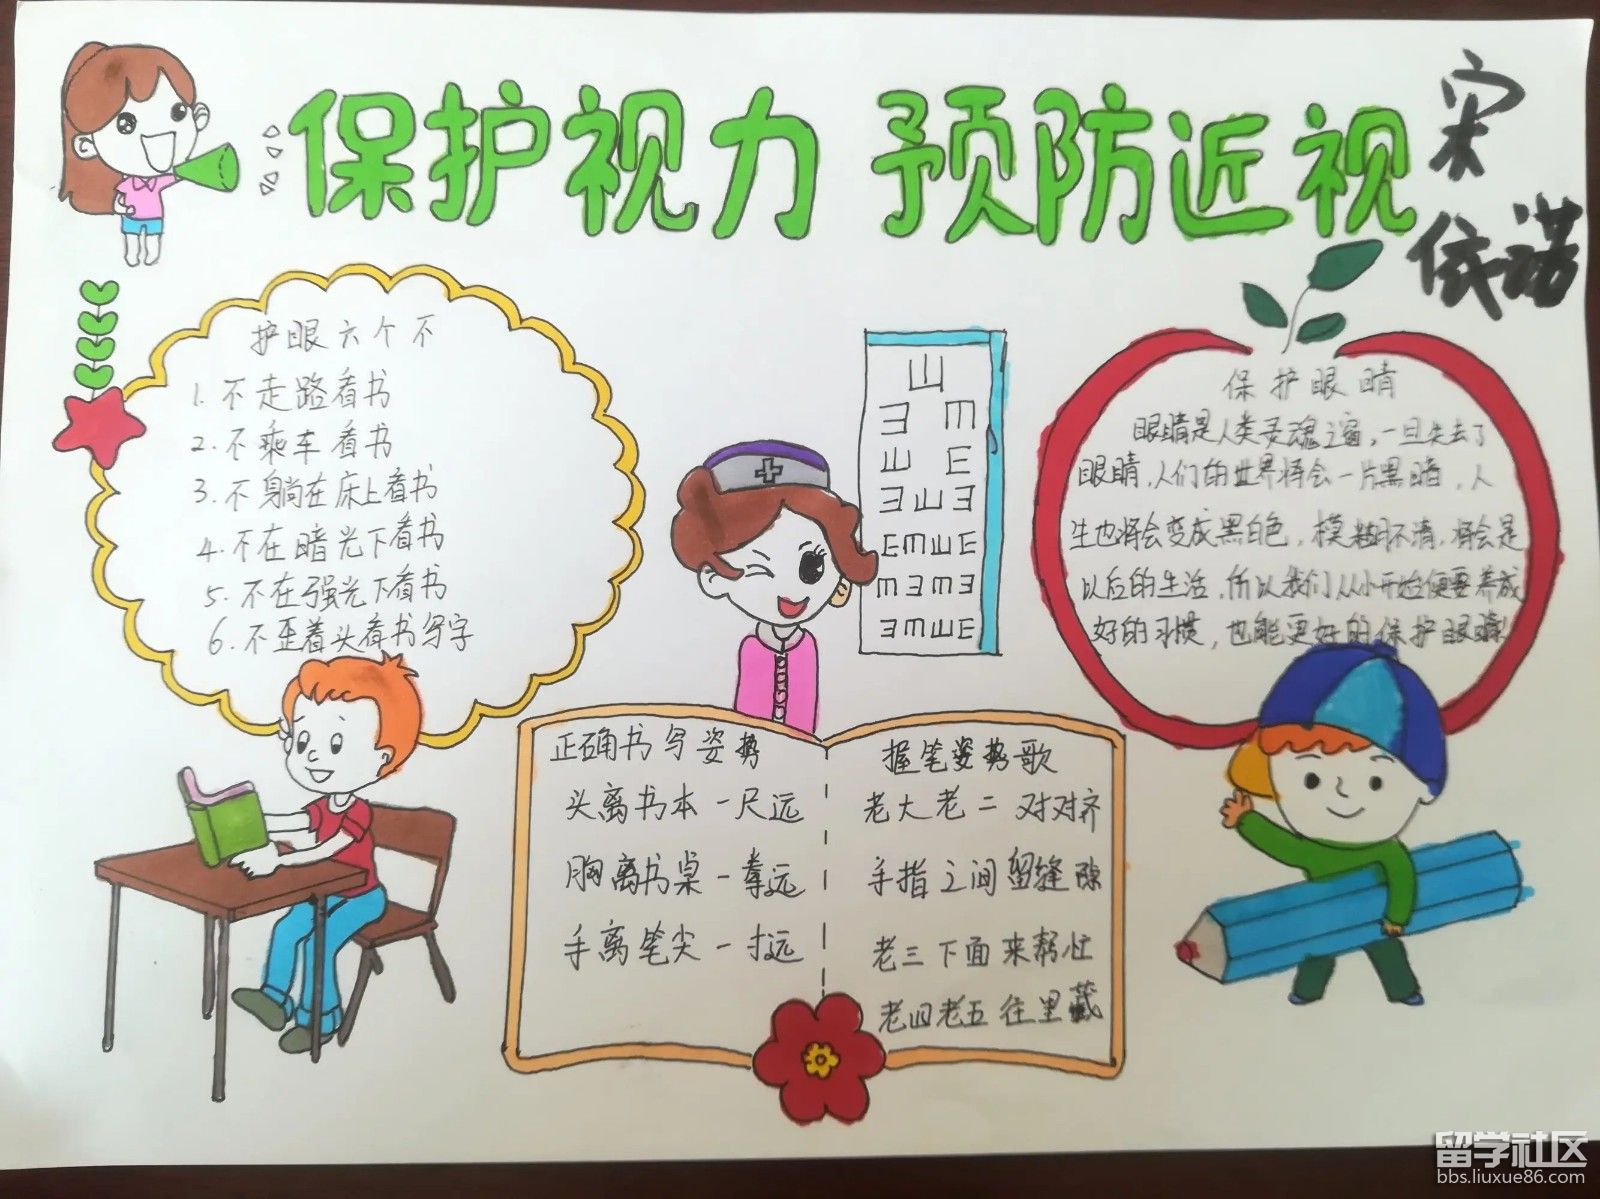 保护视力 预防近视
宋
依诺
护眼六个不
1. 不走路看书
2. 不乘车看书
3. 不躺在床上看书
4. 不在暗光下看书
5. 不在强光下看书
6. 不歪着头看书写字
山
ヨ m
山 E
ヨ山ヨ
E m 山 E
m ヨ m ヨ
ヨ m 山 E
保护眼睛
眼睛是人类灵魂之窗,一旦失去了
眼睛,人们的世界将会一片黑暗,人
生也将会变成黑白色,模糊不清,将会是
以后的生活,所以我们从小开始便要养成
好的习惯,也能更好的保护眼睛!
正确书写姿势
头离书本一尺远
胸离书桌一拳远
手离笔尖一寸远
握笔姿势歌
老大老二对对齐
手指之间留缝隙
老三下面来帮忙
老四老五往里藏
留学社区
bbs.liuxue86.com